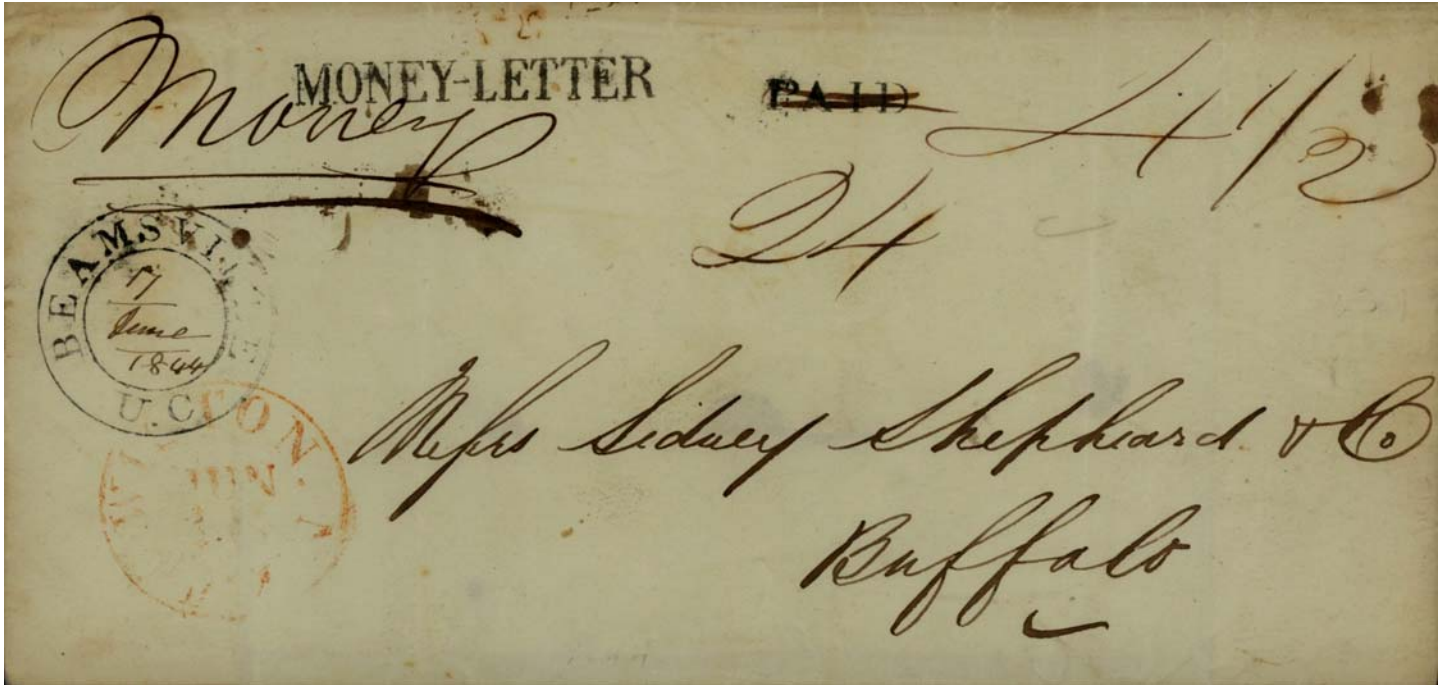 Money
MONEY-LETTER
PAID
4 1/2
24
BEAMSVILLE
17
June
1844
U.C.
Messrs Sidney Shepheard & Co
Buffalo